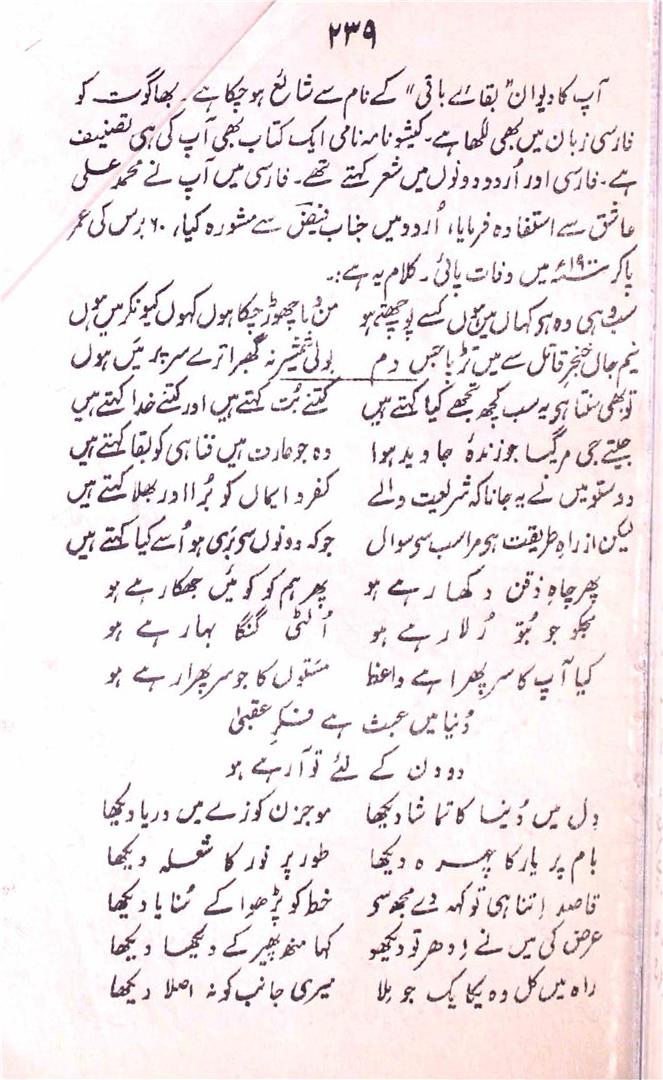 ۲۳۹
آپ کا دیوان "بقائے باقی" کے نام سے شائع ہو چکا ہے۔ بھاگوت کو
فارسی زبان میں بھی لکھا ہے۔ کیشو نامہ نامی ایک کتاب بھی آپ کی ہی تصنیف
ہے۔ فارسی اور اُردو دونوں میں شعر کہتے تھے۔ فارسی میں آپ نے محمد علی
عاشق سے استفادہ فرمایا، اُردو میں جناب فیض سے مشورہ کیا، ۶۰ برس کی عمر
پا کر میں وفات پائی۔ کلام یہ ہے:۔
سب وہی وہ ہو کہاں میں ہوں کسے پوچھتے ہو من و ما چھوڑ چکا ہوں کہوں کیونکر میں ہوں
نیم جاں خنجرِ قاتل سے میں تڑپا جس دم بولی شمشیر نہ گھبرا ترے سر پر میں ہوں
تو بھی سنتا ہی یہ سب کچھ تجھے کیا کہتے ہیں کتنے بُت کہتے ہیں اور کتنے خدا کہتے ہیں
جیتے جی مر گیا جو زندۂ جاوید ہوا وہ جو عارف ہیں فنا ہی کو بقا کہتے ہیں
دوستو میں نے یہ جانا کہ شریعت والے کفر و ایماں کو بُرا اور بھلا کہتے ہیں
لیکن از راہِ طریقت ہی مرا سب سی سوال جو کہ دونوں سی بری ہو اُسے کیا کہتے ہیں
پھر چاہِ ذقن دکھا رہے ہو پھر ہم کو کوئیں جھکا رہے ہو
مجکو جو بُتو رُلا رہے ہو اُلٹی گنگا بہا رہے ہو
کیا آپ کا سر پھرا ہے واعظ مستوں کا جو سر پھرا رہے ہو
دُنیا میں عبث ہے فکرِ عقبیٰ
دو دن کے لئے تو آ رہے ہو
دِل میں دُنیا کا تماشا دیکھا موجزن کوزے میں دریا دیکھا
بام پر یار کا چہرہ دیکھا طور پر نور کا شعلہ دیکھا
قاصد اِتنا ہی تو کہہ دے مجھ سی خط کو پڑھوا کے سُنا یا دیکھا
عرض کی میں نے اِدھر تو دیکھو کہا منھ پھیر کے دیکھا دیکھا
راہ میں کل وہ یکایک جو مِلا میری جانب کو نہ اصلا دیکھا